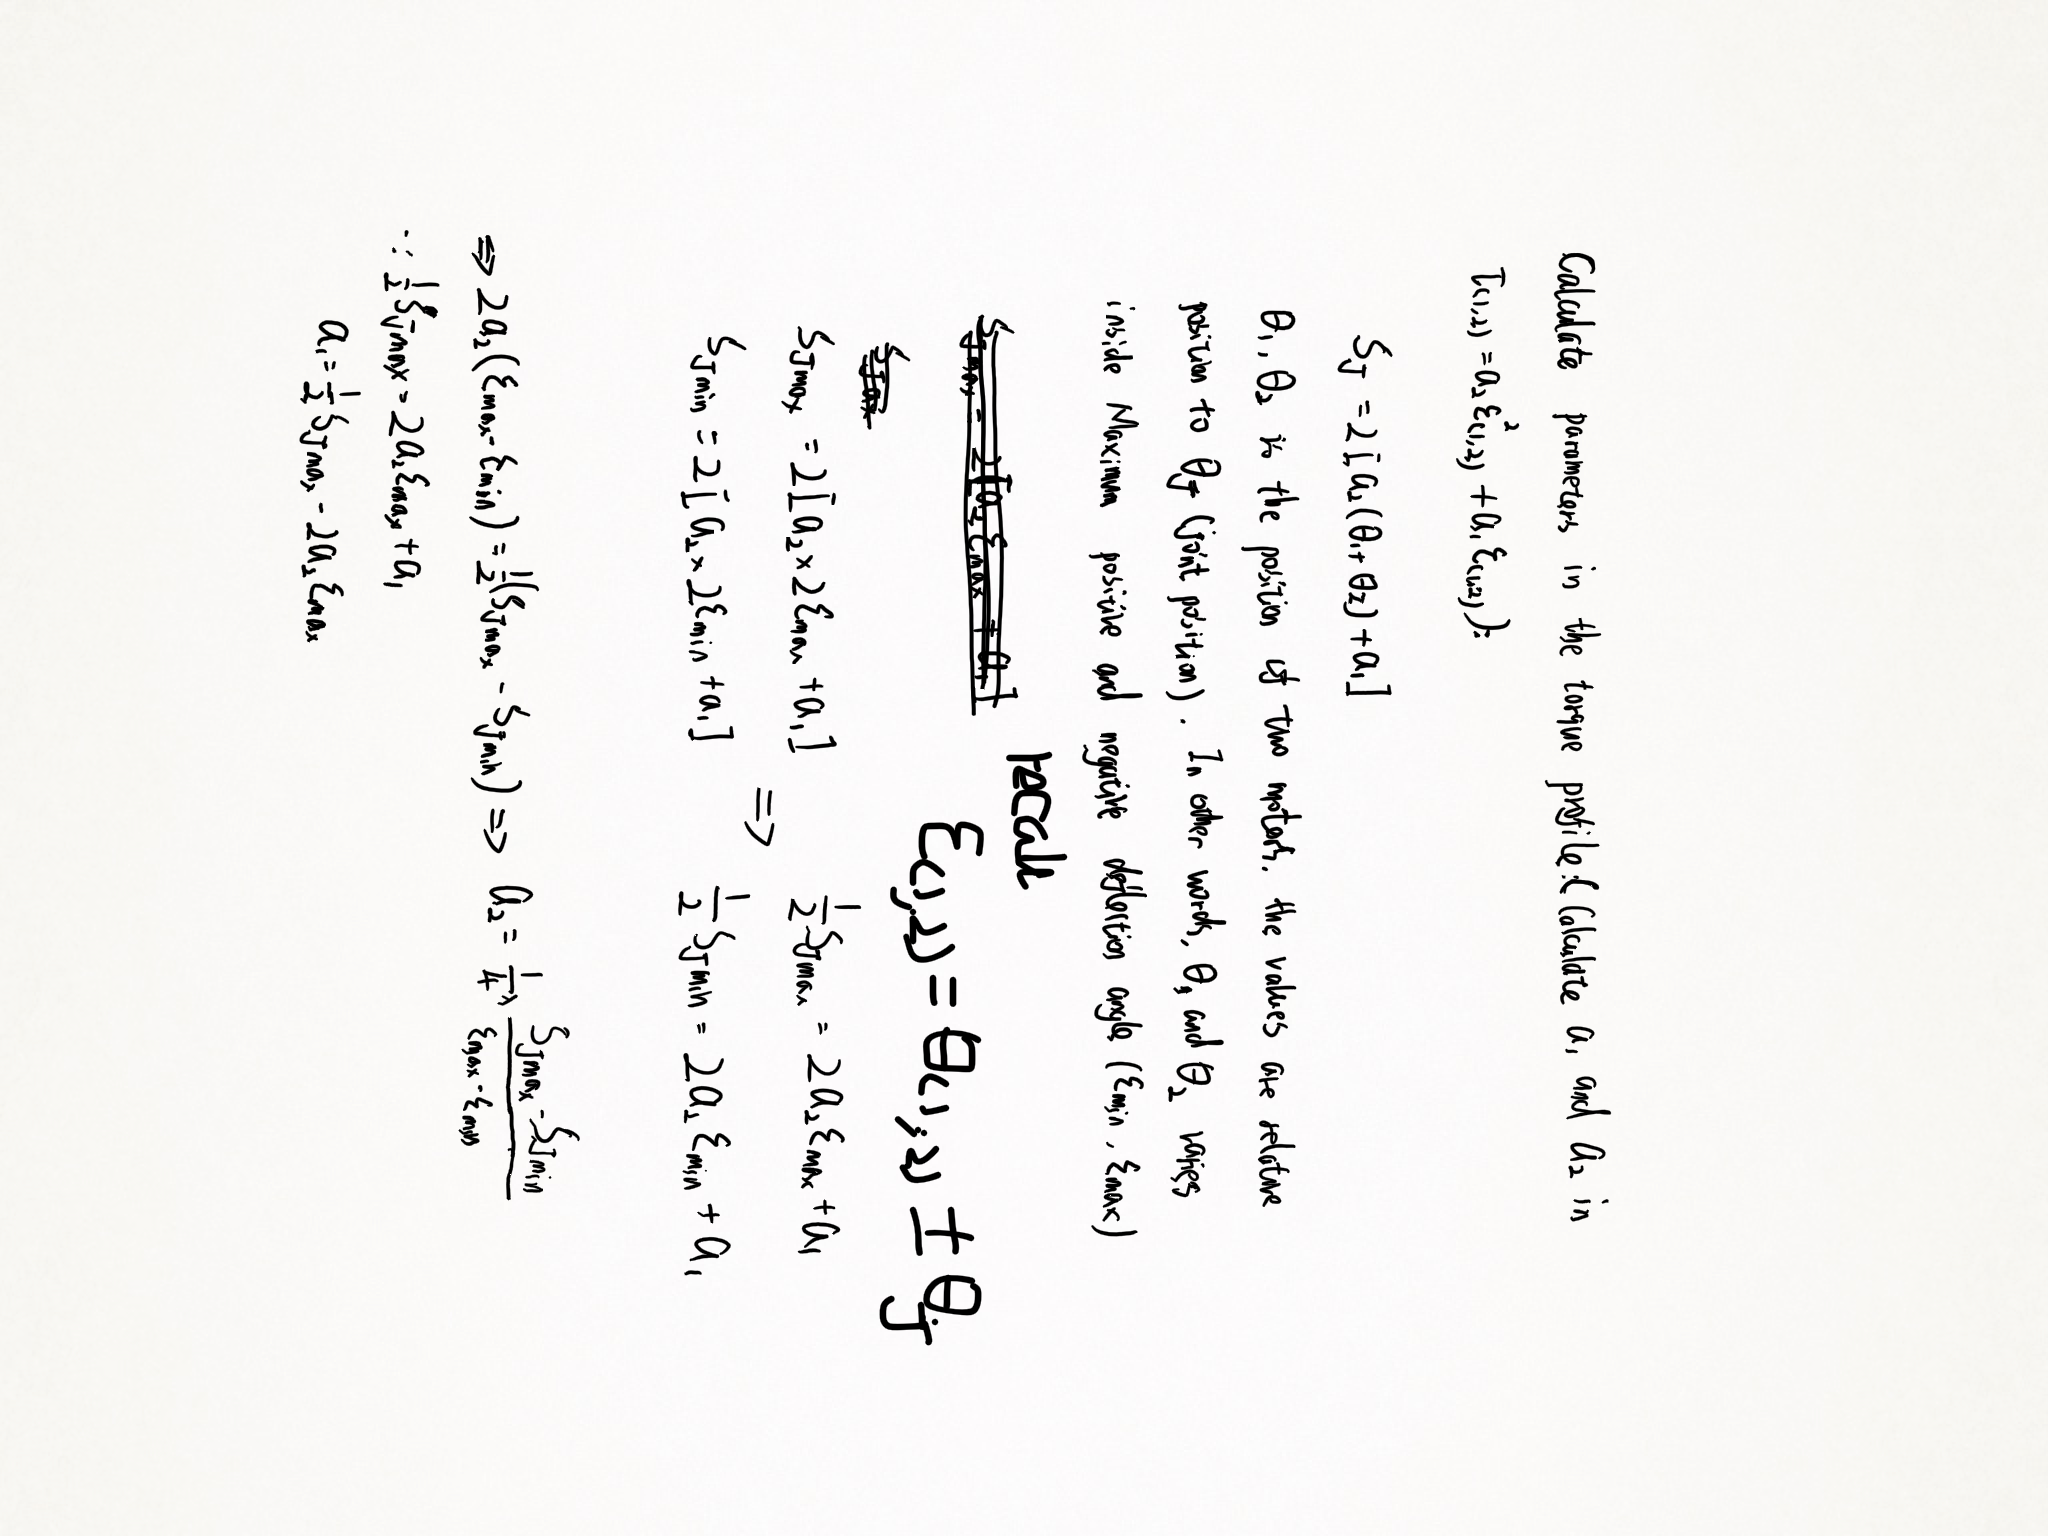 Calculate parameters in the torque profile:(Calculate a₁ and a₂ in
τ(1,2) = a₂ξ²(1,2) + a₁ξ(1,2)):
ςJ = 2[a₂(θ₁+θ₂)+a₁]
θ₁, θ₂ is the position of two motors. the values are relative
position to θJ (joint position). In other words, θ₁ and θ₂ varies
inside Maximum positive and negative deflection angle (ξmin, ξmax)
recall
ξ(1,2) = θ(1,2) ± θJ
ςJmax = 2[a₂×2ξmax+a₁] ⇒ 1/2 ςJmax = 2a₂ξmax+a₁
ςJmin = 2[a₂×2ξmin+a₁] 1/2 ςJmin = 2a₂ξmin+a₁
⇒ 2a₂(ξmax-ξmin) = 1/2(ςJmax - ςJmin) ⇒ a₂ = 1/4 × (ςJmax - ςJmin)/(ξmax-ξmin)
∵ 1/2 ςJmax = 2a₂ξmax+a₁
a₁ = 1/2 ςJmax - 2a₂ξmax